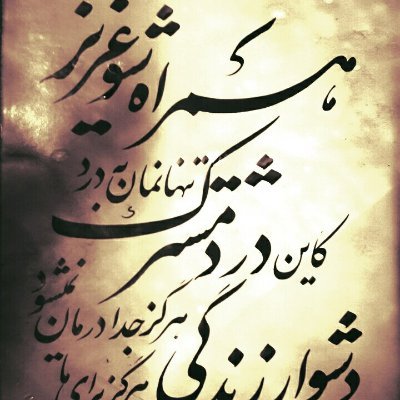 همراه شو عزیز
تنها نمان به درد
کاین درد مشترک
هرگز جدا درمان نمیشود
دشوار زندگی
هرگز برای ما